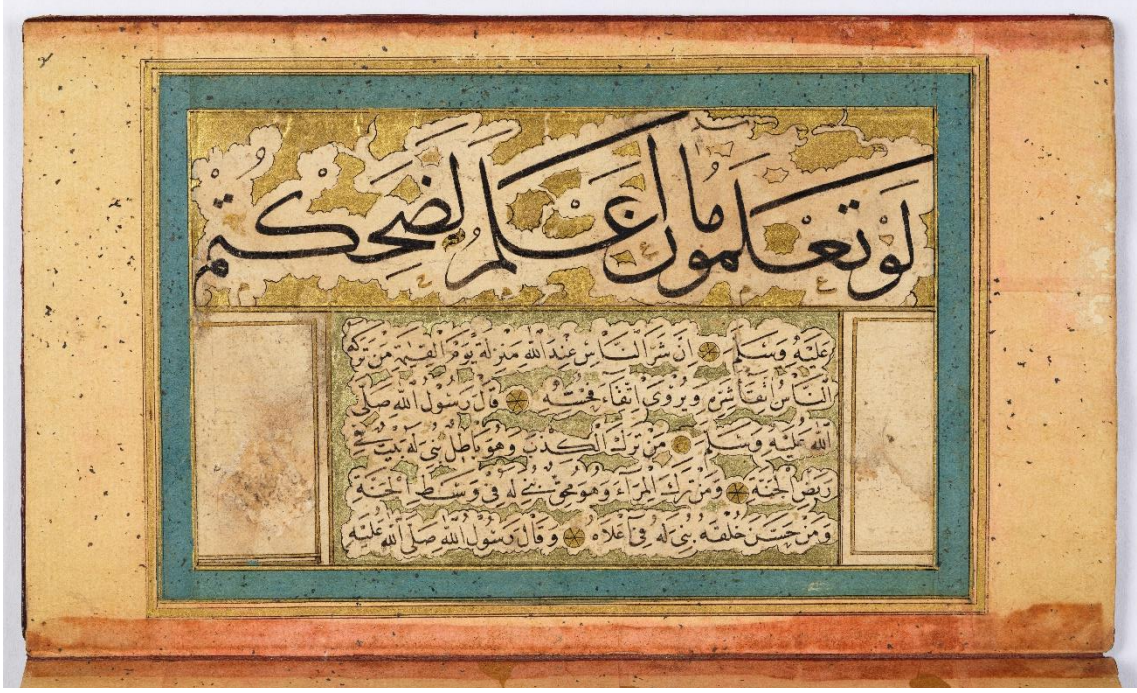 لَوْ تَعْلَمُونَ مَا اَعْلَمُ لَضَحِكْتُمْ
عَلَيْهِ وَسَلَّمَ اَنَّ شَرَّ النَّاسِ عِنْدَ اللّٰهِ مَنْزِلَةً يَوْمَ الْقِيٰمَةِ مَنْ تَرَكَهُ
النَّاسُ اتِّقَاءَ شَرِّهِ وَيُرْوٰى اِتِّقَاءَ فُحْشِهِ قَالَ رَسُولُ اللّٰهِ صَلَّى
اللّٰهُ عَلَيْهِ وَسَلَّمَ مَنْ تَرَكَ الْكَذِبَ وَهُوَ بَاطِلٌ بُنِيَ لَهُ فِي
رَبَضِ الْجَنَّةِ وَمَنْ تَرَكَ الْمِرَاءَ وَهُوَ مُحِقٌّ بُنِيَ لَهُ فِي وَسَطِ الْجَنَّةِ
وَمَنْ حَسَّنَ خُلُقَهُ بُنِيَ لَهُ فِي اَعْلَاهُ وَقَالَ رَسُولُ اللّٰهِ صَلَّى اللّٰهُ عَلَيْهِ